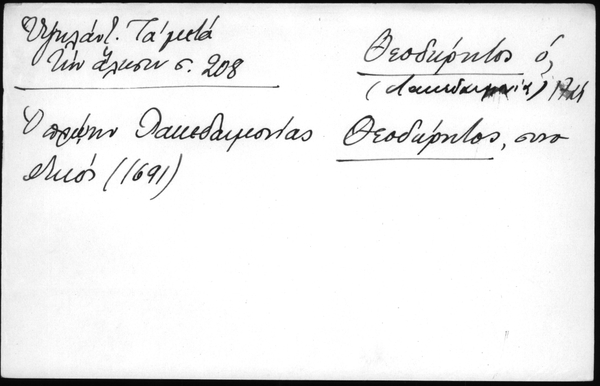 Ὑψηλάντ. Τὰ μετὰ
τὴν ἅλωσιν σ. 208
Θεοδώρητος ὁ,
(Λακεδαιμονία)
Ὁ πρώην Λακεδαιμονίας Θεοδώρητος, συνο
δικός (1691)